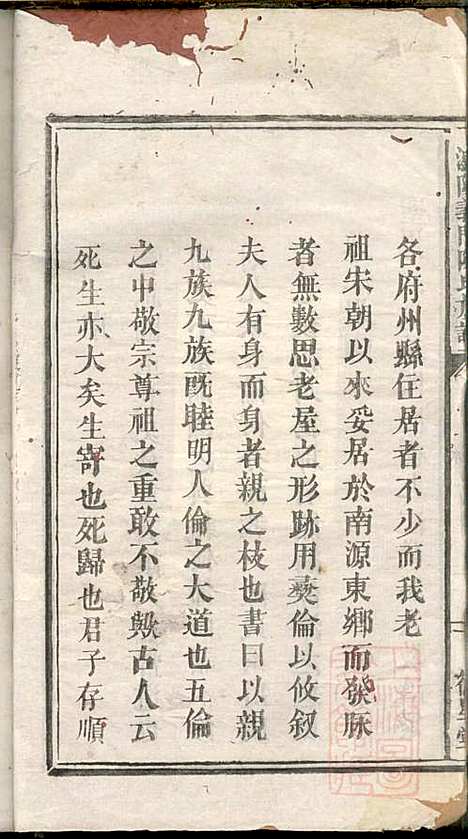 各府州縣住居者不少而我老
祖宋朝以來妥居於南源東鄉而發脉
者無數思老屋之形跡用彛倫以攸叙
夫人有身而身者親之枝也書曰以親
九族九族既睦明人倫之大道也五倫
之中敬宗尊祖之重敢不敬歟古人云
死生亦大矣生寄也死歸也君子存順